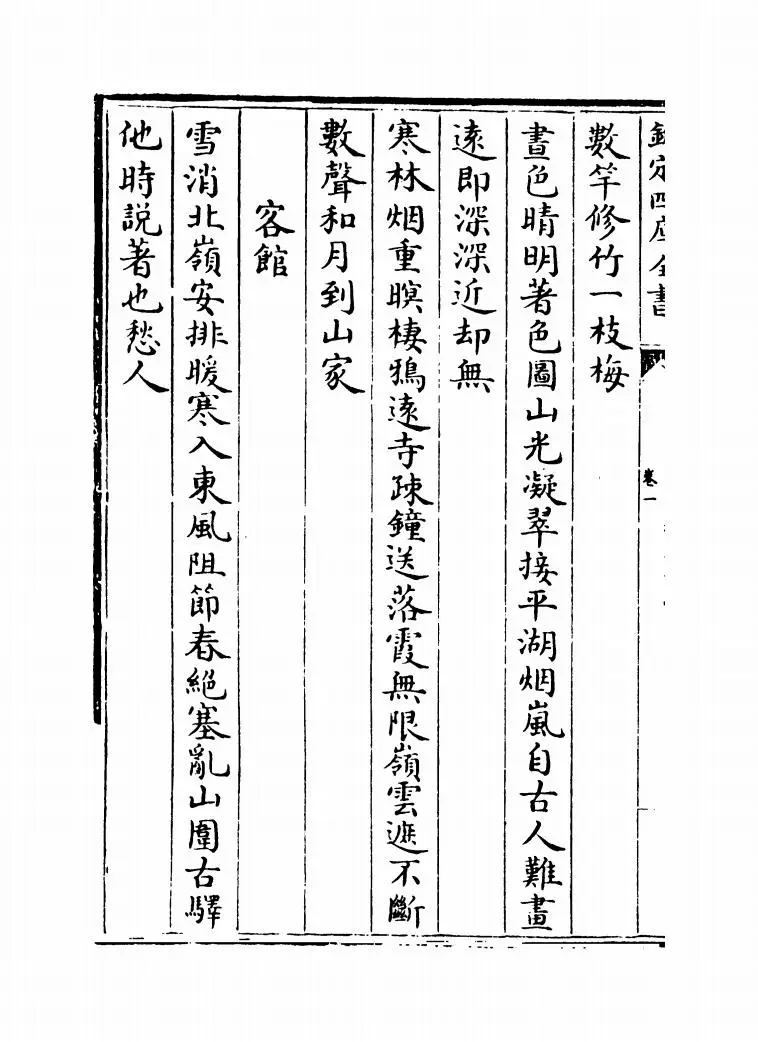 欽定四庫全書
卷一
數竿修竹一枝梅
晝色晴明著色圖山光凝翠接平湖烟嵐自古人難畫
遠即深深近却無
寒林烟重暝棲鴉遠寺疎鐘送落霞無限嶺雲遮不斷
數聲和月到山家
客館
雪消北嶺安排暖寒入東風阻節春絶塞亂山圍古驛
他時説著也愁人